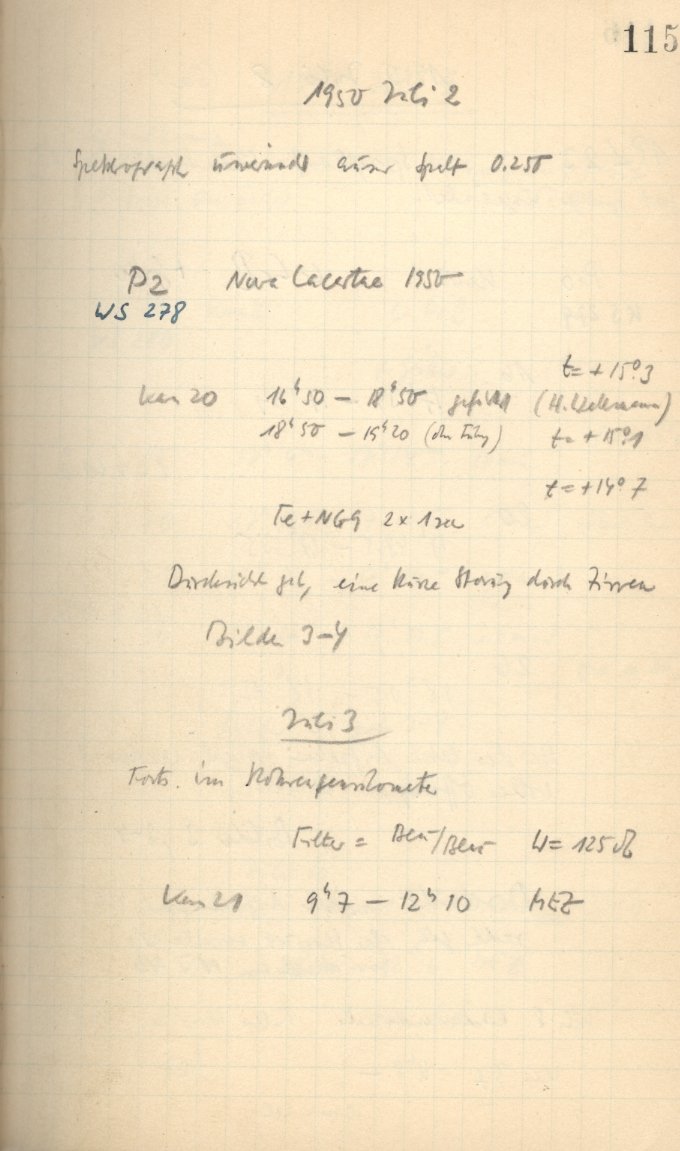 115
1950 Juli 2
Spektrograph unverändert außer Spalt 0.250
P2 Nova Lacertae 1950
WS 278
t = +15°.3
Kass 20 16ʰ50 – 18ʰ50 geführt (H. Kellermann)
18ʰ50 – 19ʰ20 (ohne Führg) t = +15°.1
t = +14°.7
Fe+NG9 2×1
Durchsicht gut, eine kurze Störung durch Zirren
Bilder 3–4
Juli 3
Forts. im
Filter = Blau/Blau W = 125
Kass 21 9ʰ7 – 12ʰ10 MEZ